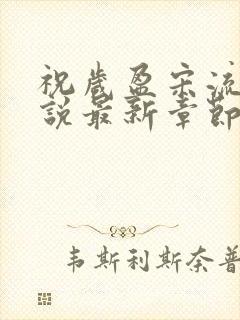 祝岁盈宋流
说最新章节
韦斯利斯奈普